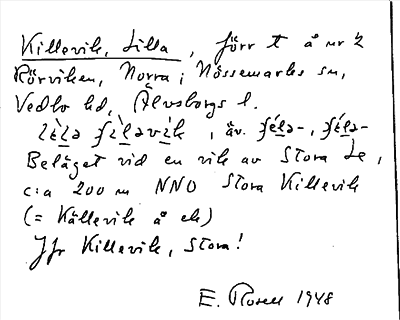 Killevik, Lilla, förr t å nr 2
Rörviken, Norra i Nössemarks sn,
Vedbo hd, Älvsborgs l.
Beläget vid en vik av Stora Le,
c:a 200 m NNO Stora Killevik
(= Källevik å ek)
Jfr Killevik, Stora!
E. Rosell 1948